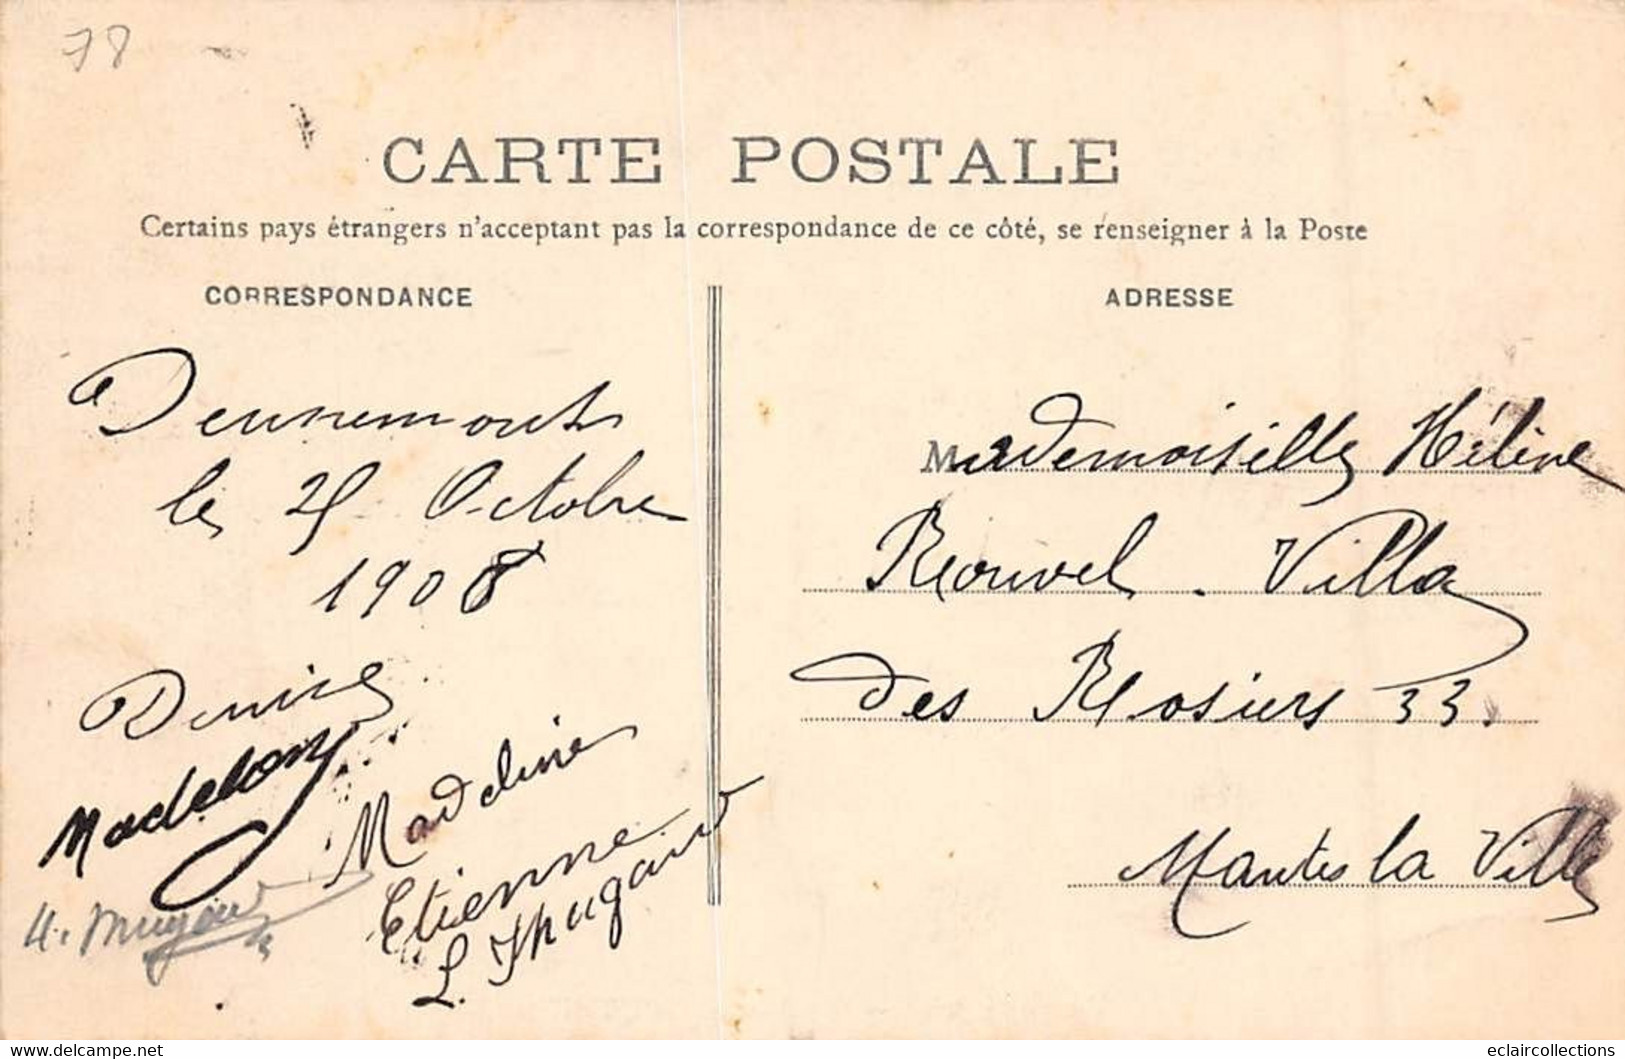 78
CARTE POSTALE
Certains pays étrangers n'acceptant pas la correspondance de ce côté, se renseigner à la Poste
CORRESPONDANCE
Dennemont
le 25 Octobre
1908
Denise
Madelon
Madeleine
Etienne
L. Thugaud
ADRESSE
Mademoiselle Hélène
Rouvel. Villa
des Rosiers 33.
Mantes la Ville
www.delcampe.net
eclaircollections